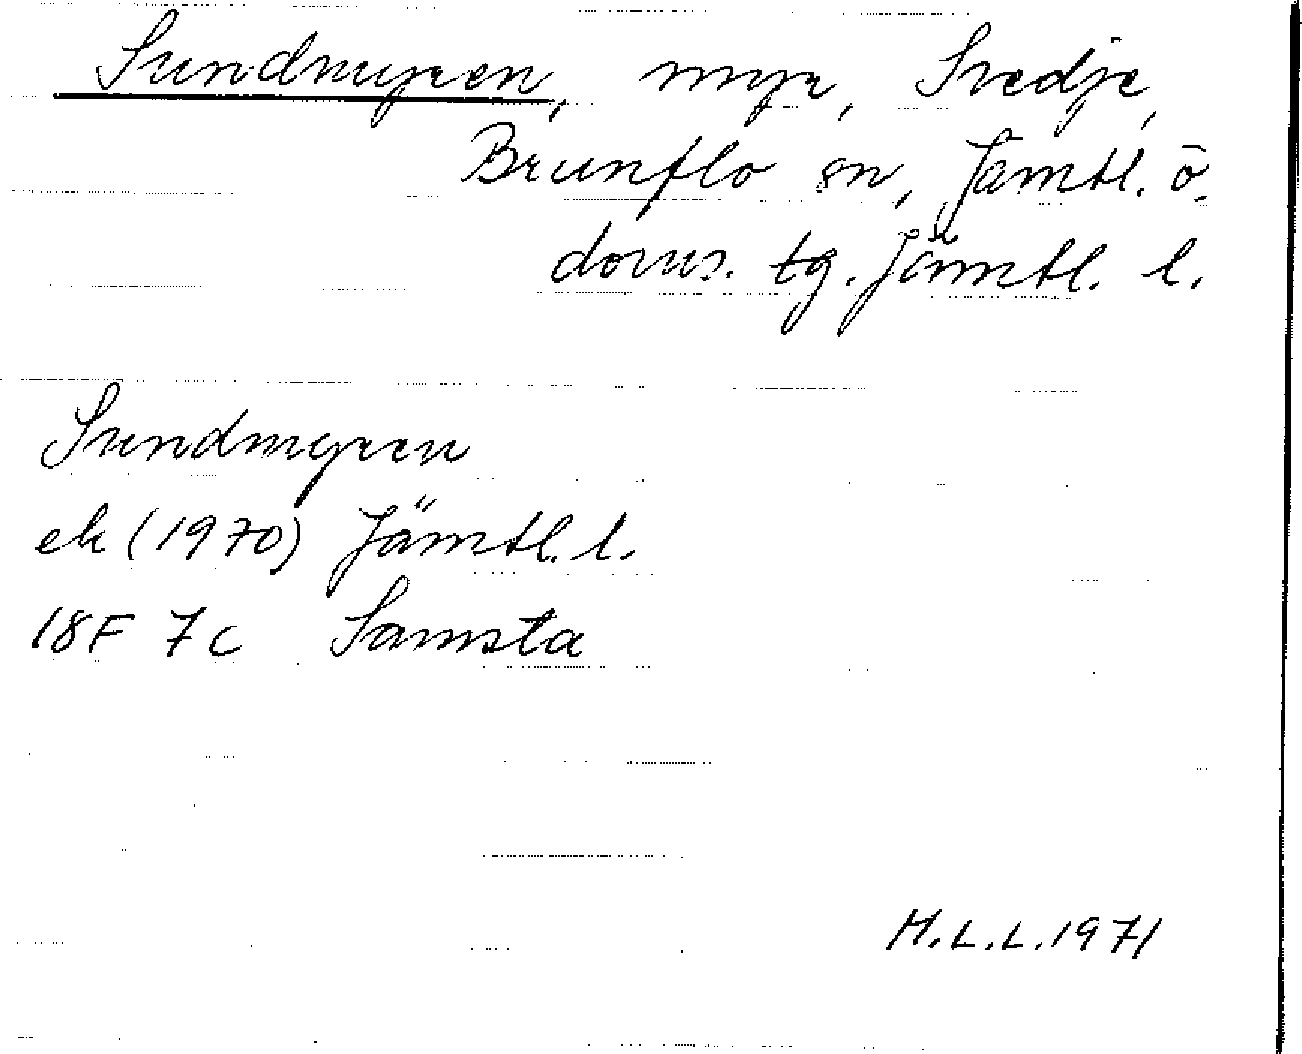 Sundmyren, myr, Svedje,
Brunflo sn, Jämtl. ö.
doms. tg. Jämtl. l.
Sundmyren
ek (1970) Jämtl. l.
18F 7c Samsta
H.L.L. 1971